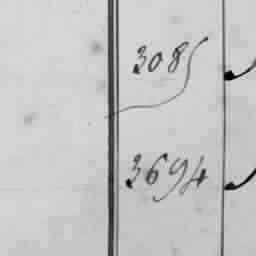 3085
3694